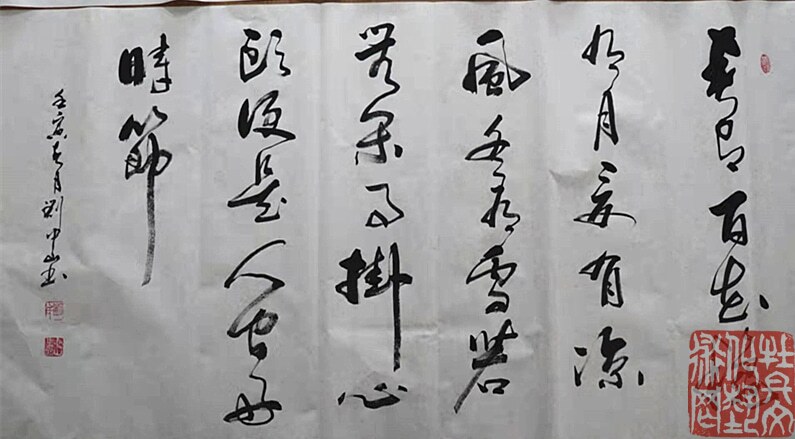 春有百花秋
有月夏有凉
風冬有雪若
無閑事掛心
頭便是人間好
時節
壬寅月劉中山書